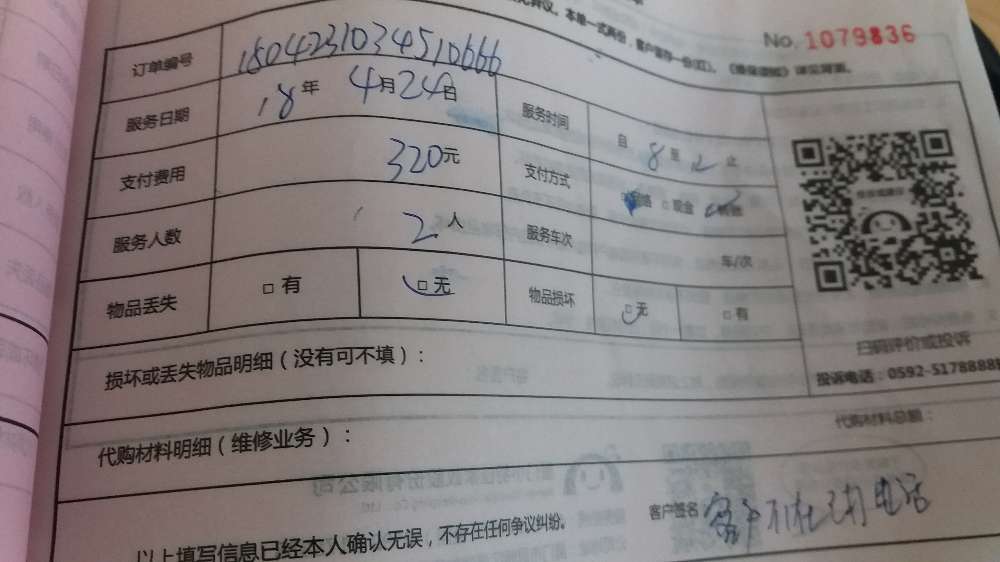 本单一式两份，客户留存一份(红)、《维保须知》详见背面。
No. 1079836
订单编号 1804231034510666
服务日期 18年 4月24日 服务时间 自 8 至 12 止
支付费用 320元 支付方式 □现金
服务人数 2人 服务车次 车/次
物品丢失 □ 有 □ 无 物品损坏 □ 无 □ 有
扫码评价或投诉
投诉电话：0592-5178888
损坏或丢失物品明细（没有可不填）：
代购材料明细（维修业务）： 代购材料总额：
客户签名 客户不在已打电话
以上填写信息已经本人确认无误，不存在任何争议纠纷。